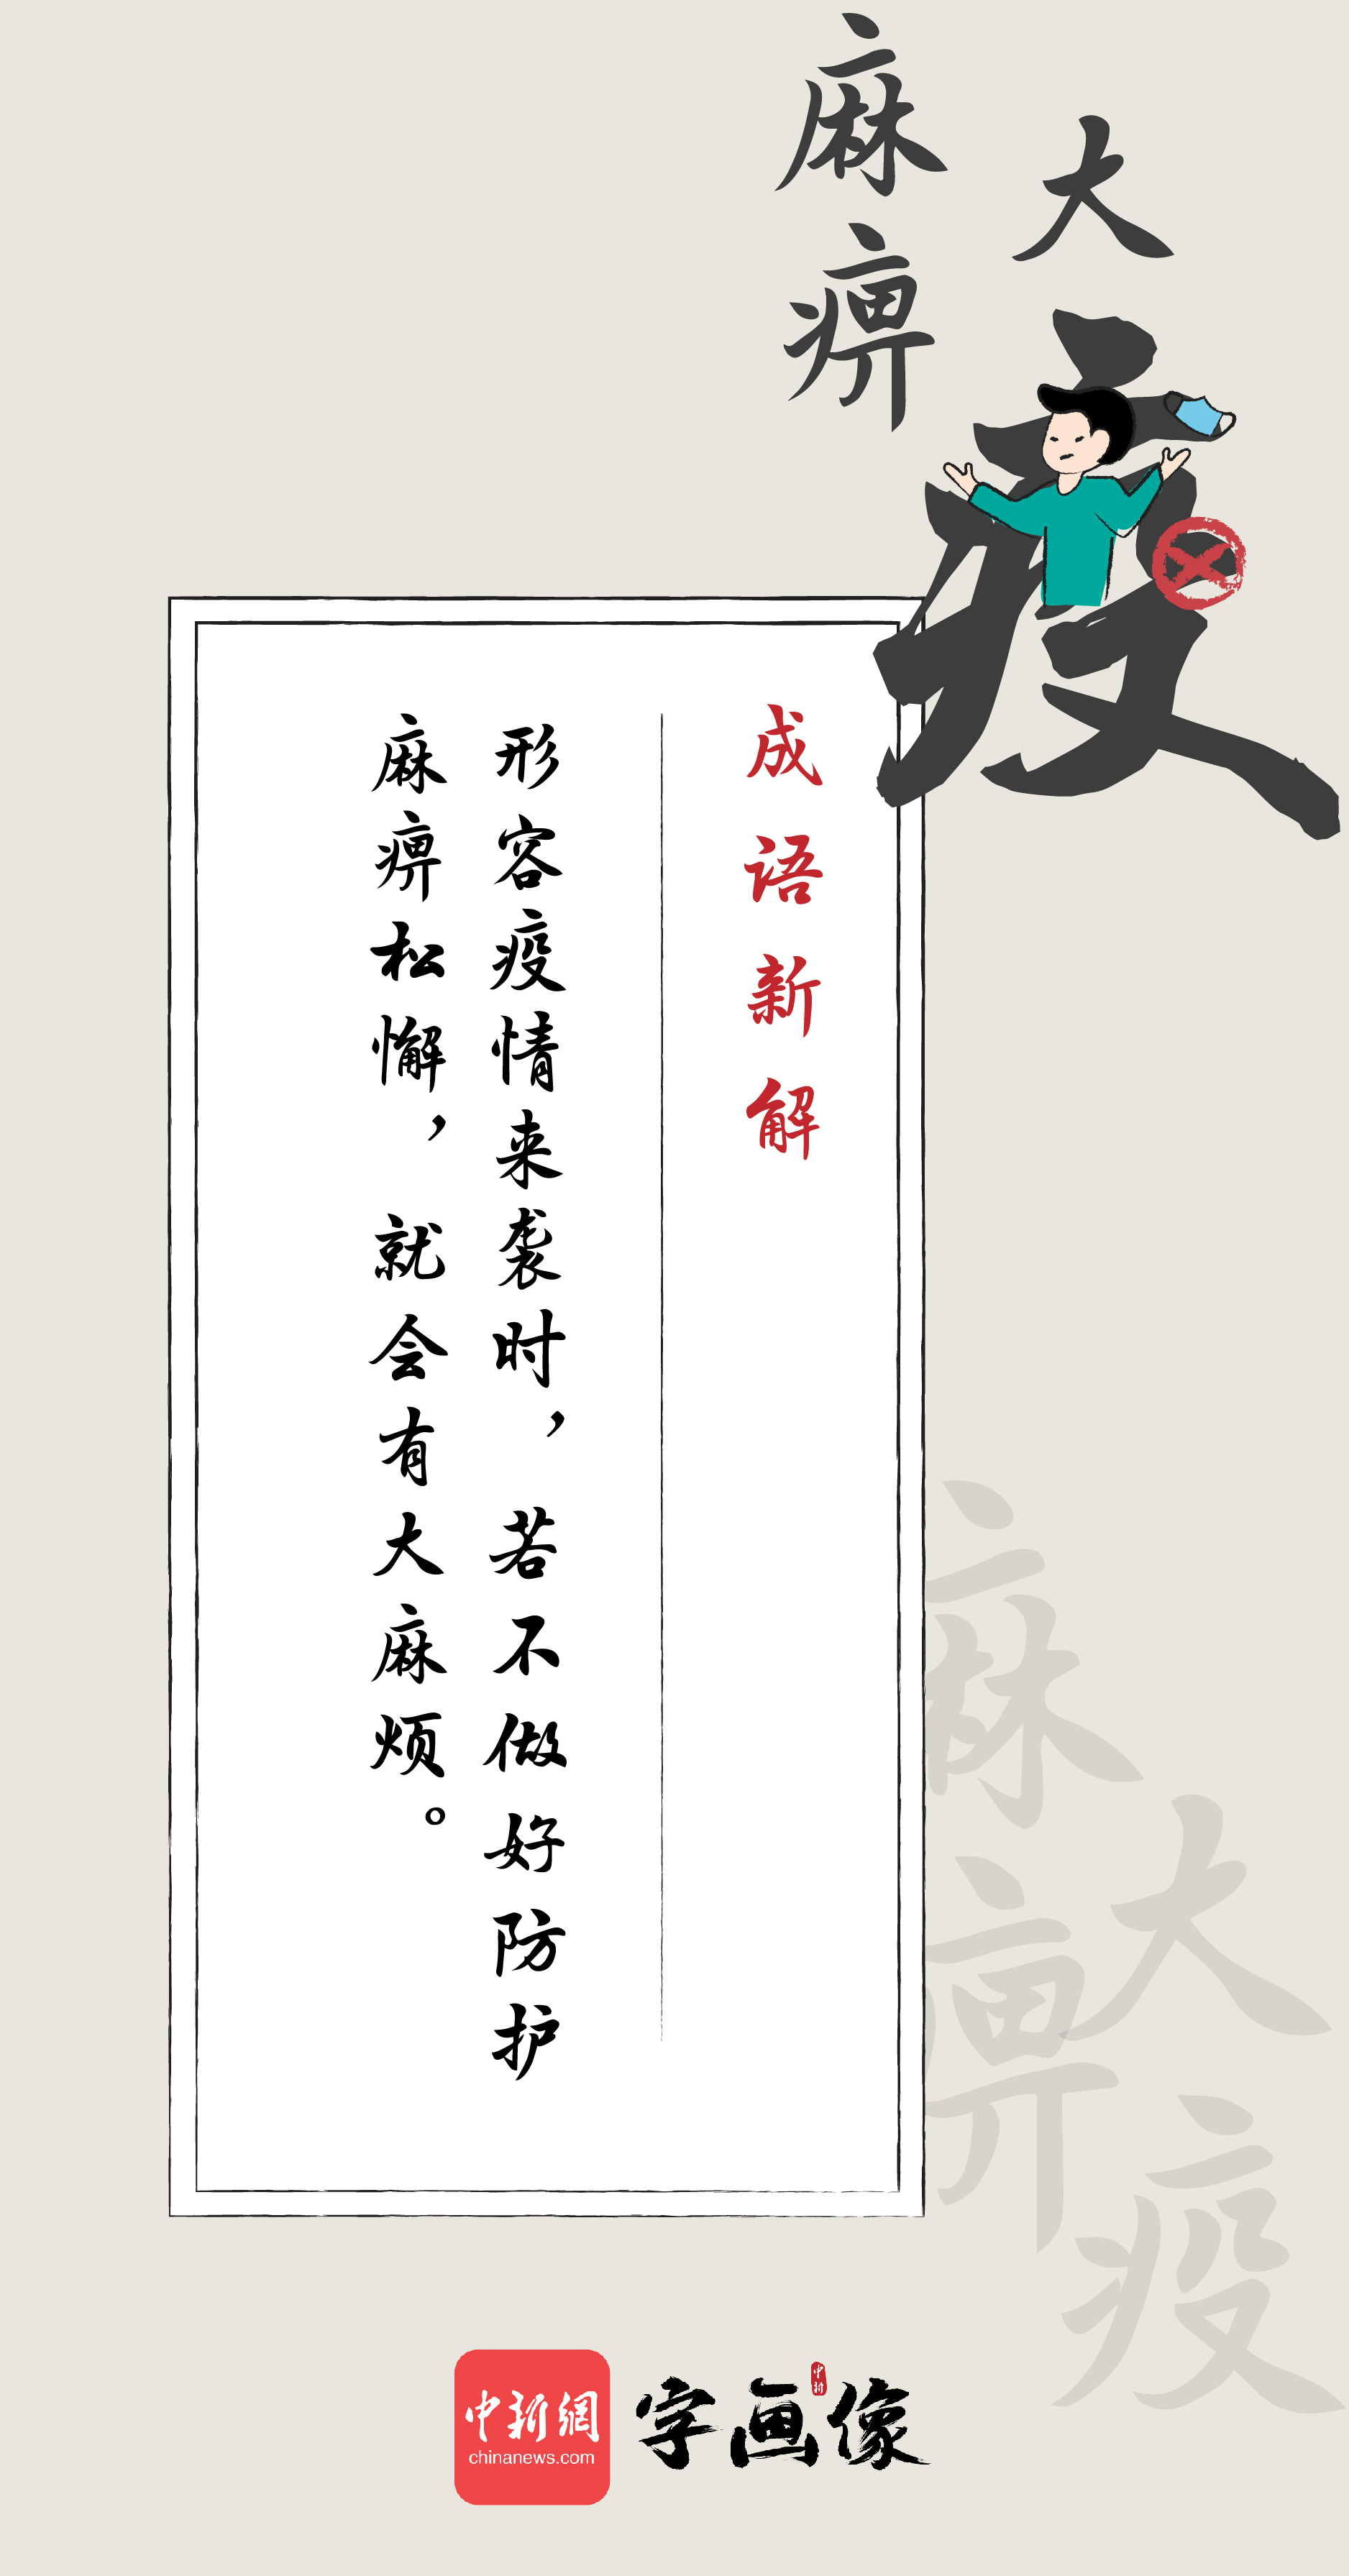 大疫
麻痹
成语新解
形容疫情来袭时，若不做好防护
麻痹松懈，就会有大麻烦。
大疫
麻痹
中新網
chinanews.com
字画像
中新